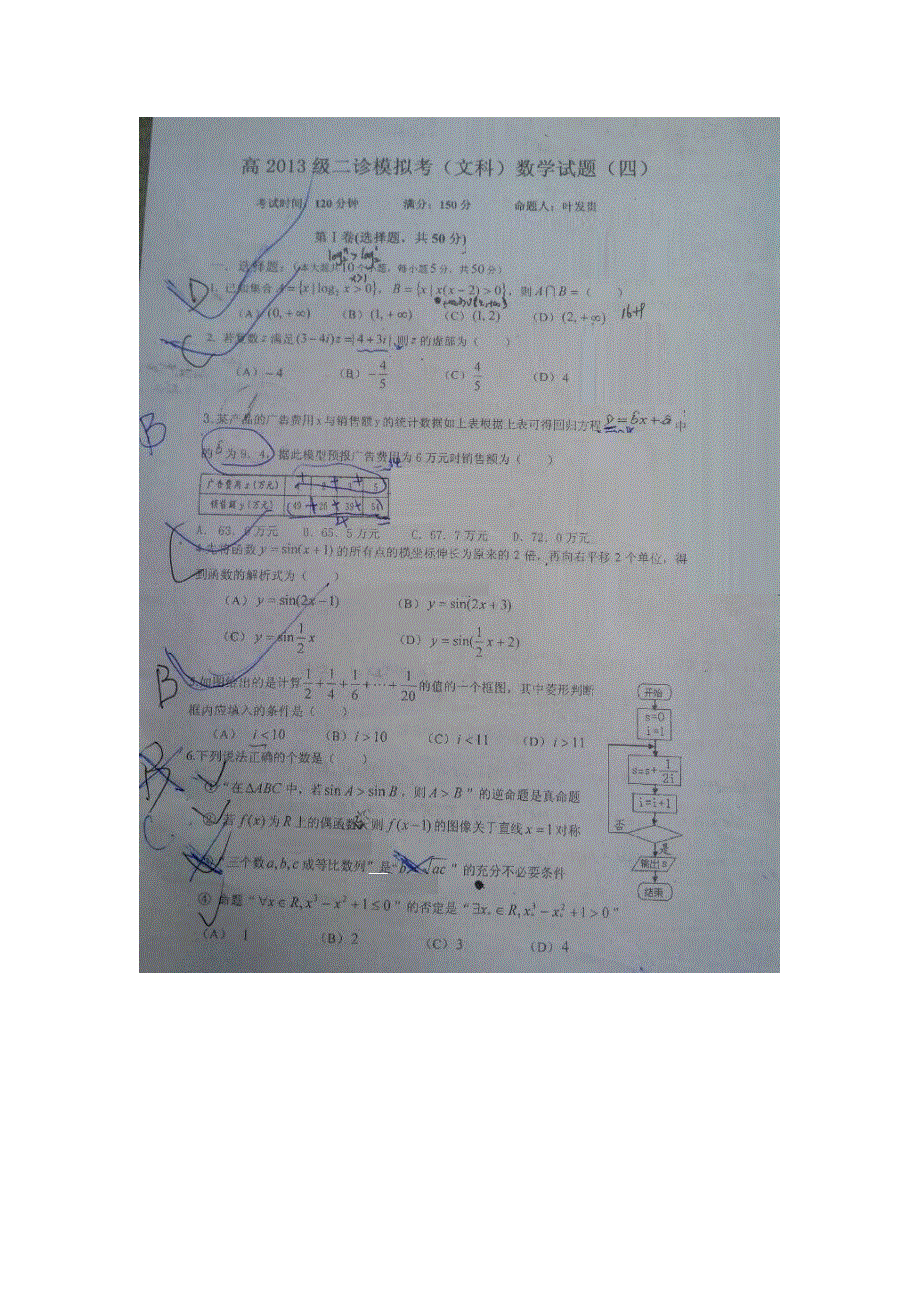 高 2013 级二诊模拟考（文科）数学试题（四）
考试时间：120 分钟 满分：150 分 命题人：叶发贵
第 I 卷(选择题，共 50 分)
一．选择题：（本大题共10个小题，每小题5分，共50分）
x>1
1. 已知集合 A={x|log₂ x>0}，B={x|x(x−2)>0}，则 A∩B=（ ）
D
（A）(0,+∞) （B）(1,+∞) （C）(1,2) （D）(2,+∞) 16+9
2. 若复数 z 满足 (3−4i)z=|4+3i|，则 z 的虚部为（ ）
C
（A）−4 （B）−4/5 （C）4/5 （D）4
3. 某产品的广告费用 x 与销售额 y 的统计数据如上表根据上表可得回归方程 ŷ=b̂x+â 中
B
的 b̂ 为 9.4，据此模型预报广告费用为 6 万元时销售额为（ ）
广告费用 x（万元） 5
销售额 y（万元） 49 26 39 54
A. 63.6万元 B. 65.5万元 C. 67.7万元 D. 72.0万元
4. 将函数 y=sin(x+1) 的所有点的横坐标伸长为原来的 2 倍，再向右平移 2 个单位，得
C
到函数的解析式为（ ）
（A）y=sin(2x−1) （B）y=sin(2x+3)
（C）y=sin 1/2 x （D）y=sin(1/2 x+2)
5.如图给出的是计算 1/2+1/4+1/6+⋯+1/20 的值的一个框图，其中菱形判断
B
框内应填入的条件是（ ）
（A） i<10 （B）i>10 （C）i<11 （D）i>11
6.下列说法正确的个数是（ ）
①“在ΔABC 中，若 sin A>sin B，则 A>B”的逆命题是真命题
② 若 f(x) 为 R 上的偶函数，则 f(x−1) 的图像关于直线 x=1 对称
C.
③“三个数 a,b,c 成等比数列”是“b=√ac”的充分不必要条件
④ 命题“∀x∈R,x³−x²+1≤0”的否定是“∃x₀∈R,x₀³−x₀²+1>0”
（A） 1 （B）2 （C）3 （D）4
开始
s=0
i=1
s=s+1/2i
i=i+1
否
是
输出s
结束